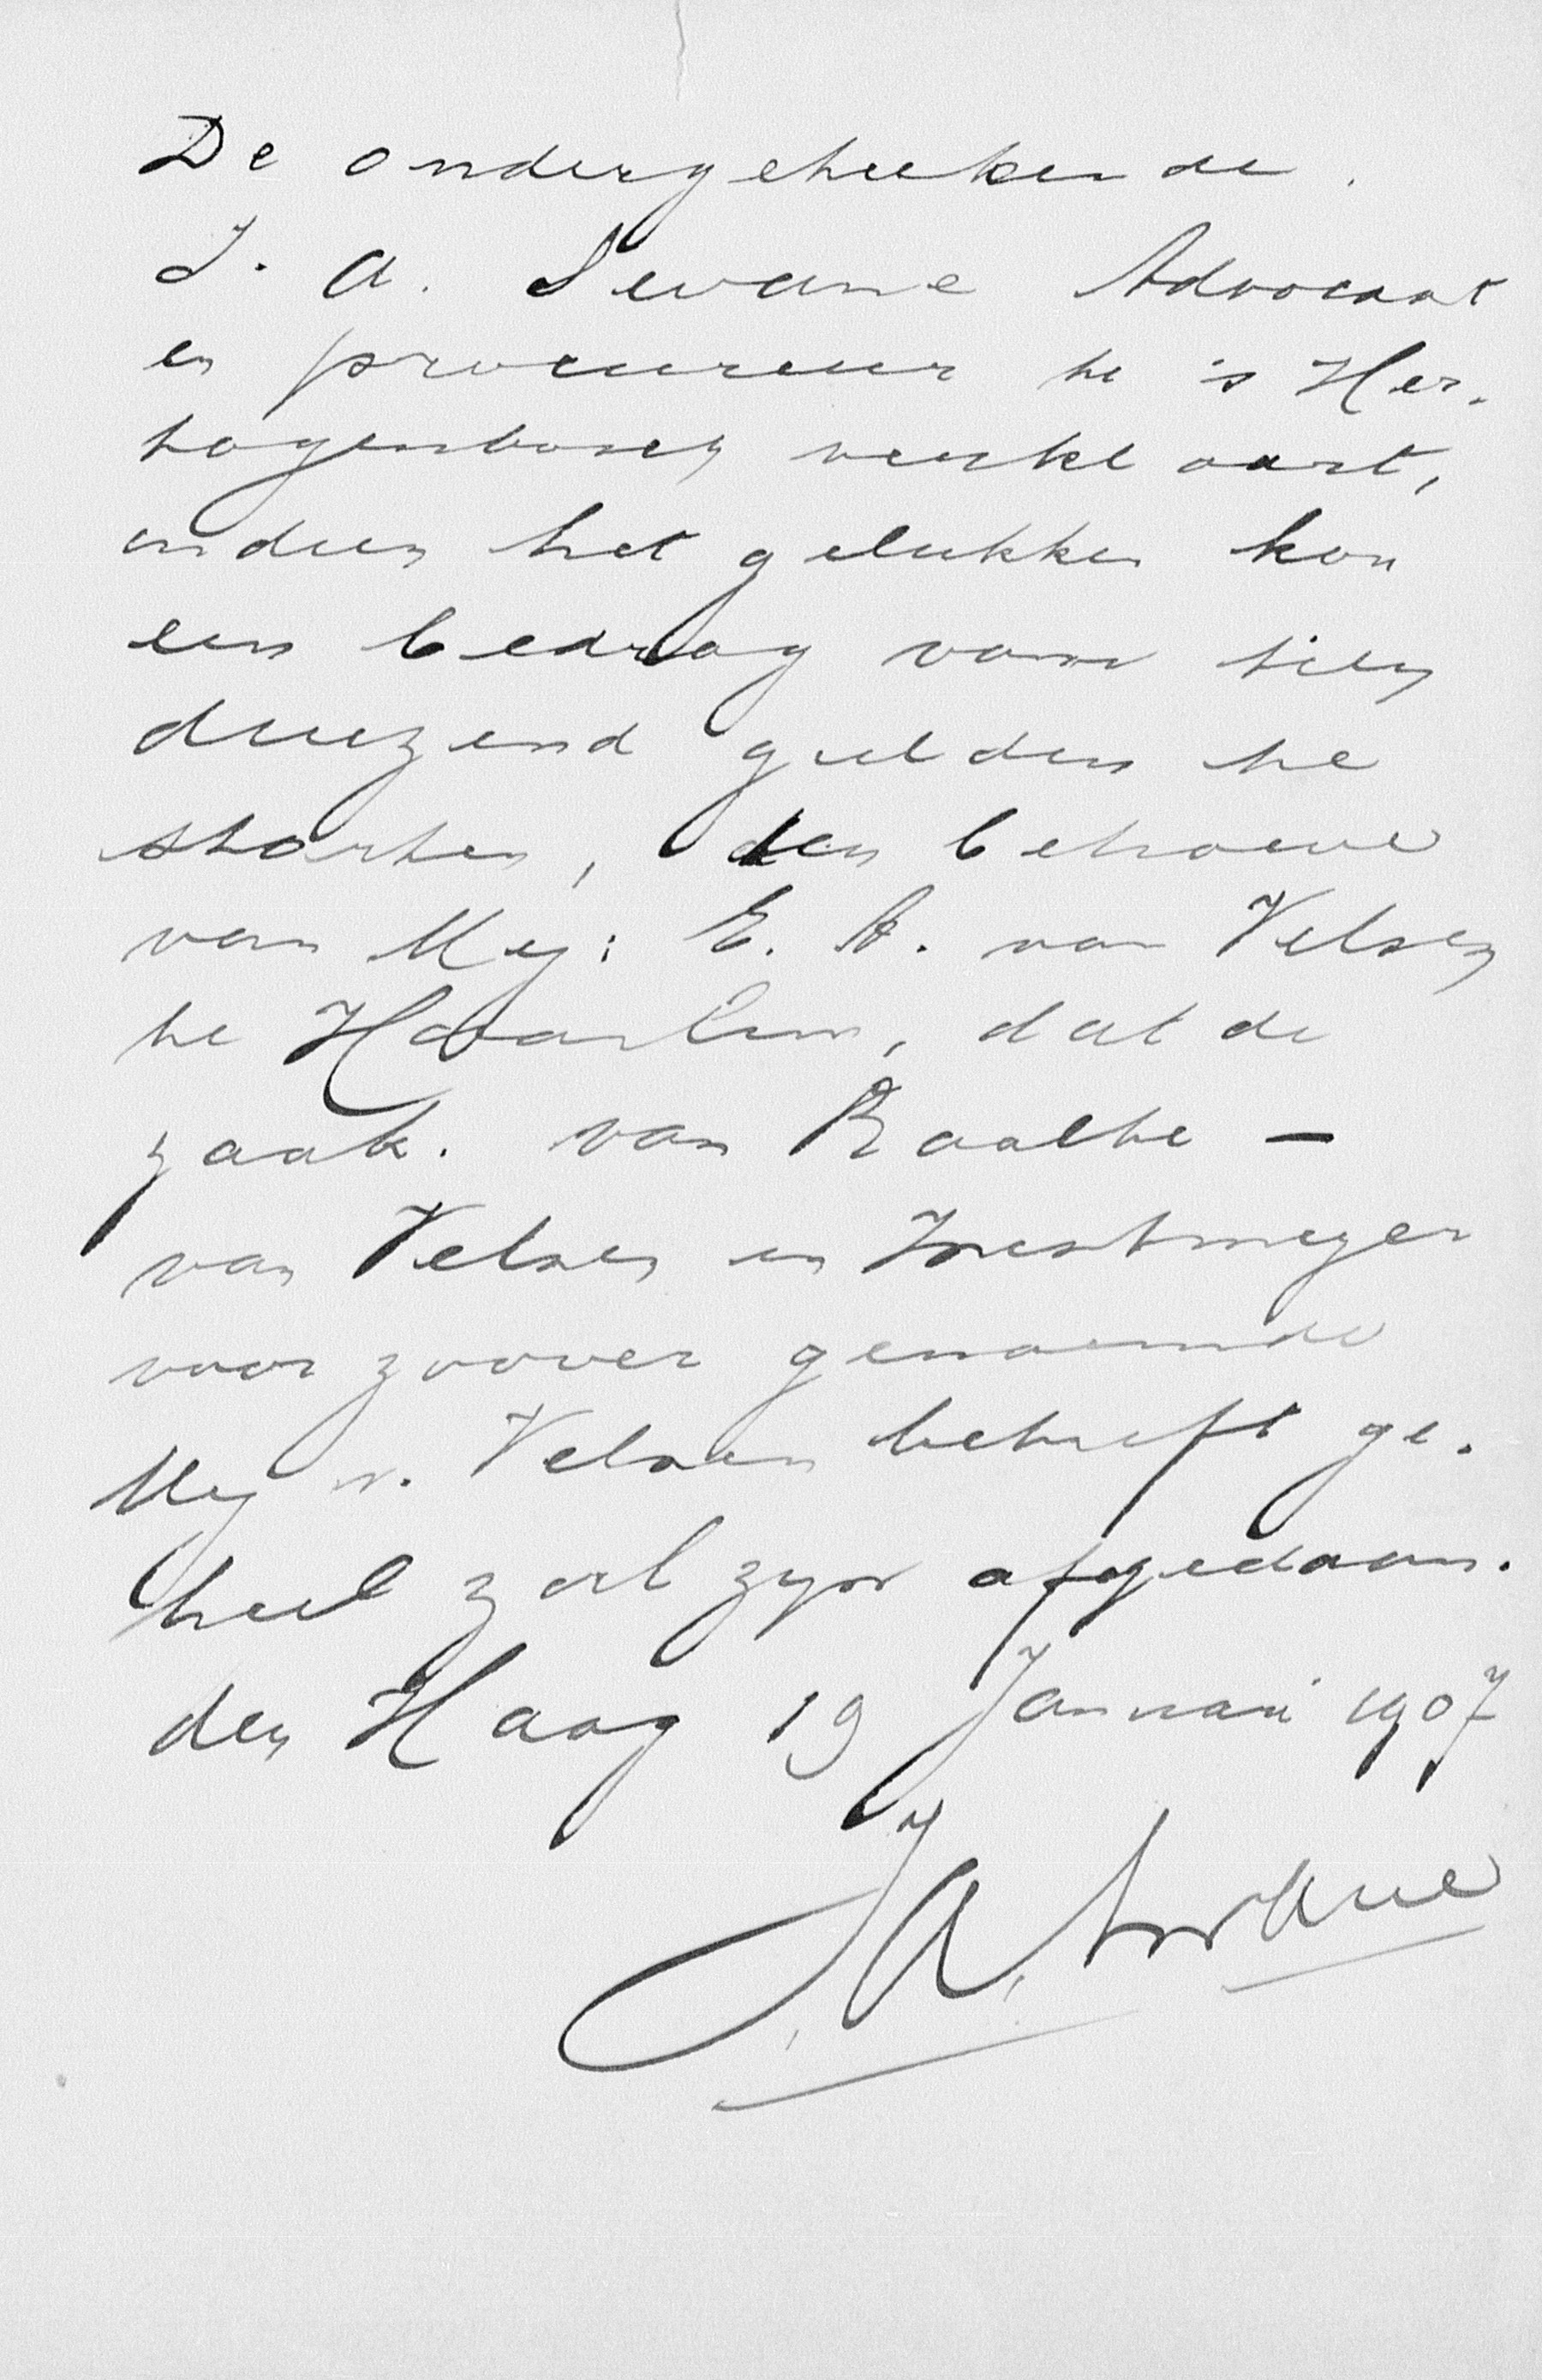 De ondergeteekende.
J. A. Levane Advocaat
en procureur te 's Her-
togenbosch verklaart,
indien het gelukken kon
een bedrag van tien
duizend gulden te
storten, ten behoeve
van Mej: E. A. van Velsen
te Haarlem, dat de
zaak. van Raalte -
van Velsen en Westmeyer
voor zoover genoemde
Mej v. Velsen betreft ge-
heel zal zyn afgedaan.
den Haag 19 Januari 1907
J. A. Levane